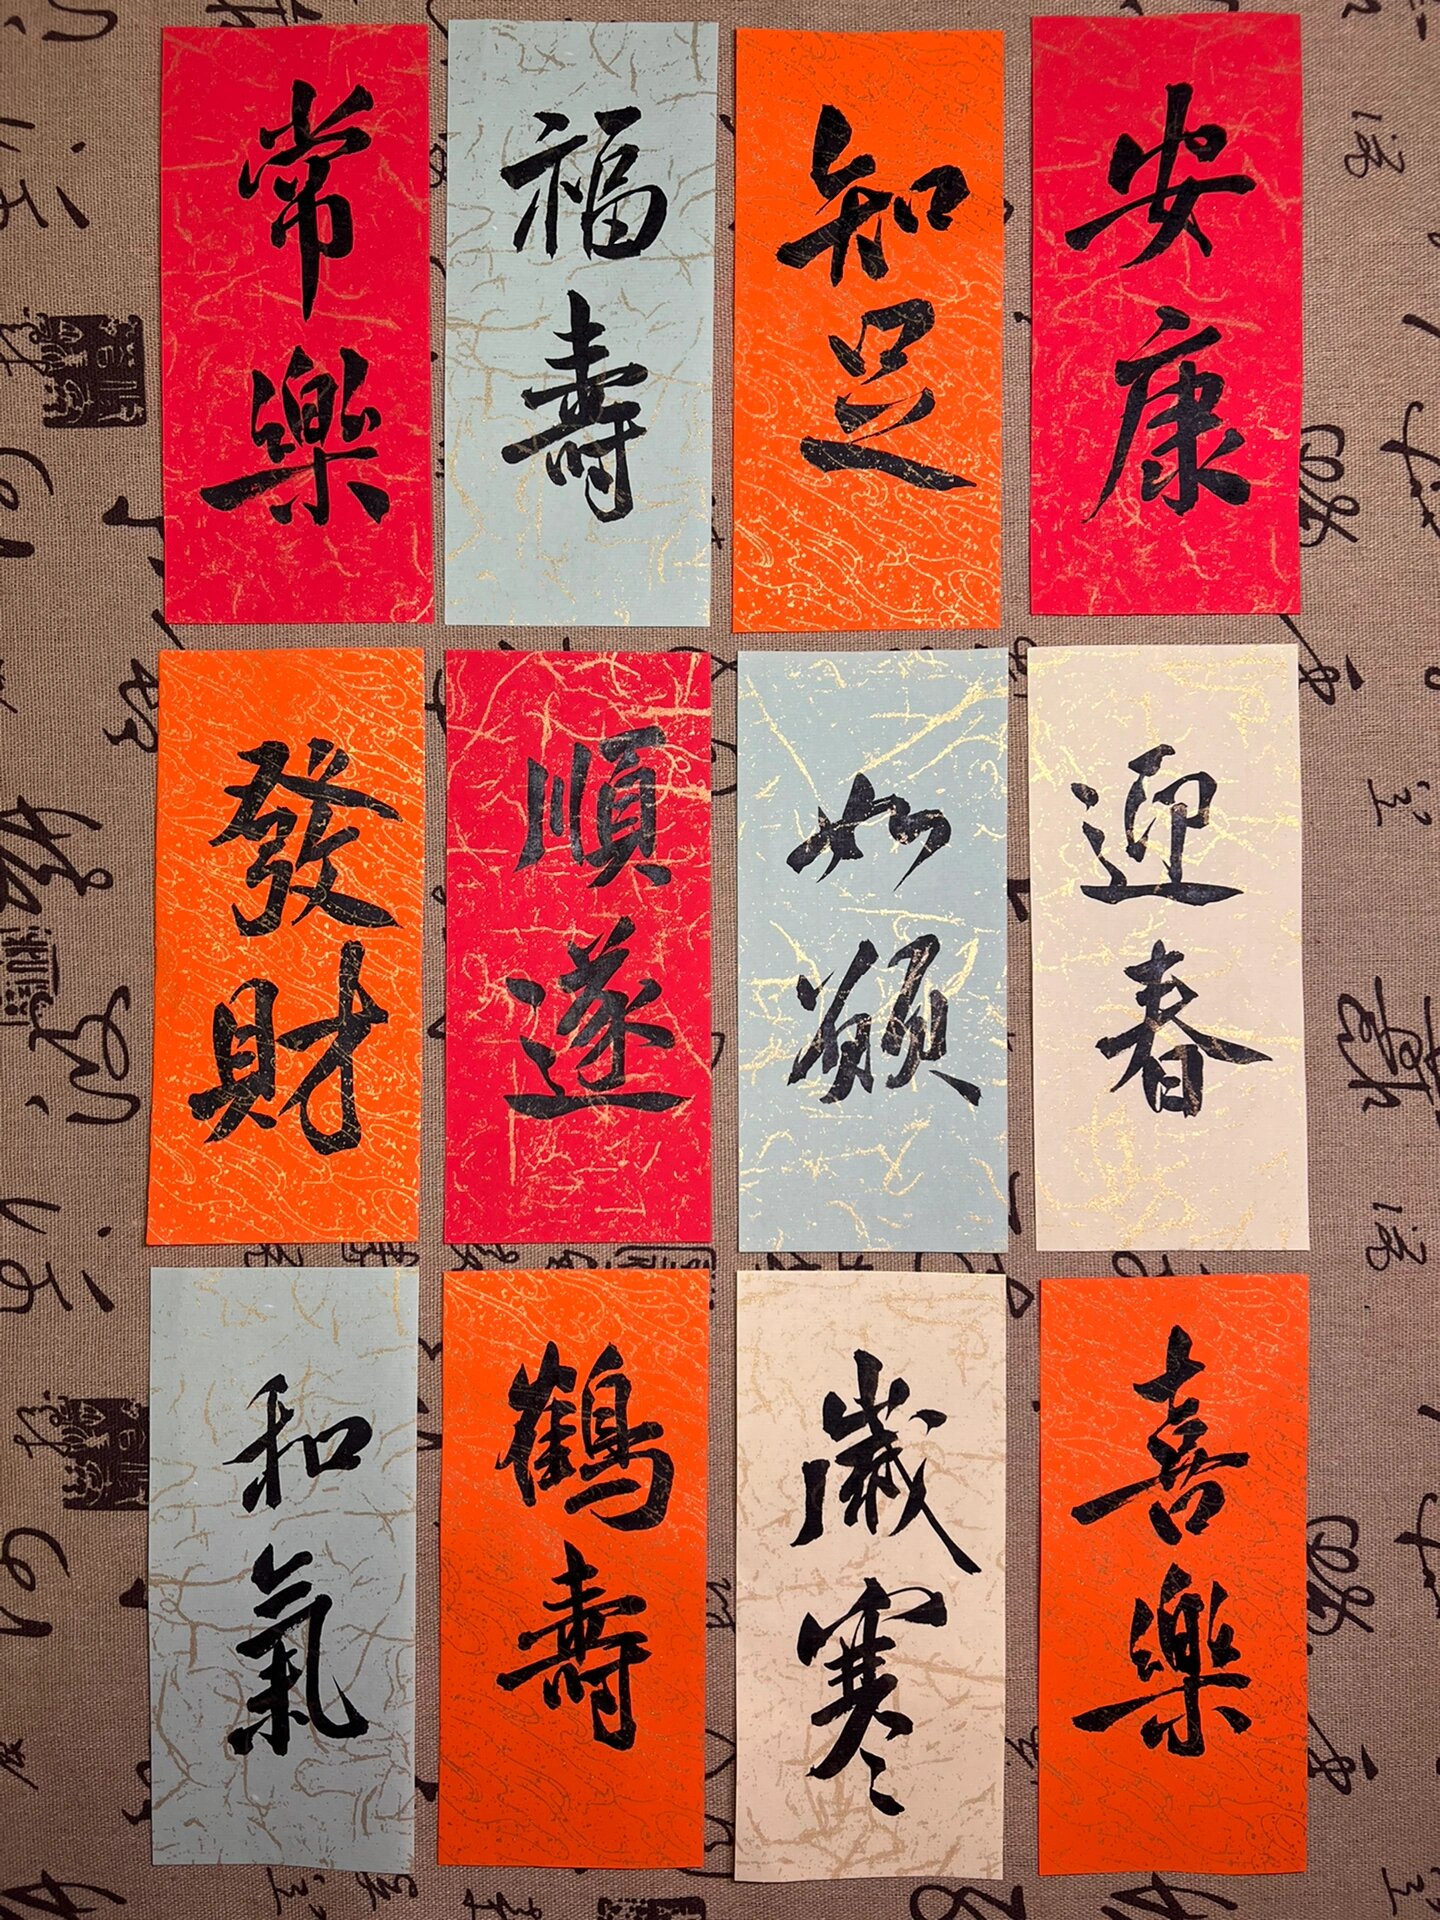 常樂
福壽
知足
安康
發財
順遂
如願
迎春
和氣
鶴壽
歲寒
喜樂